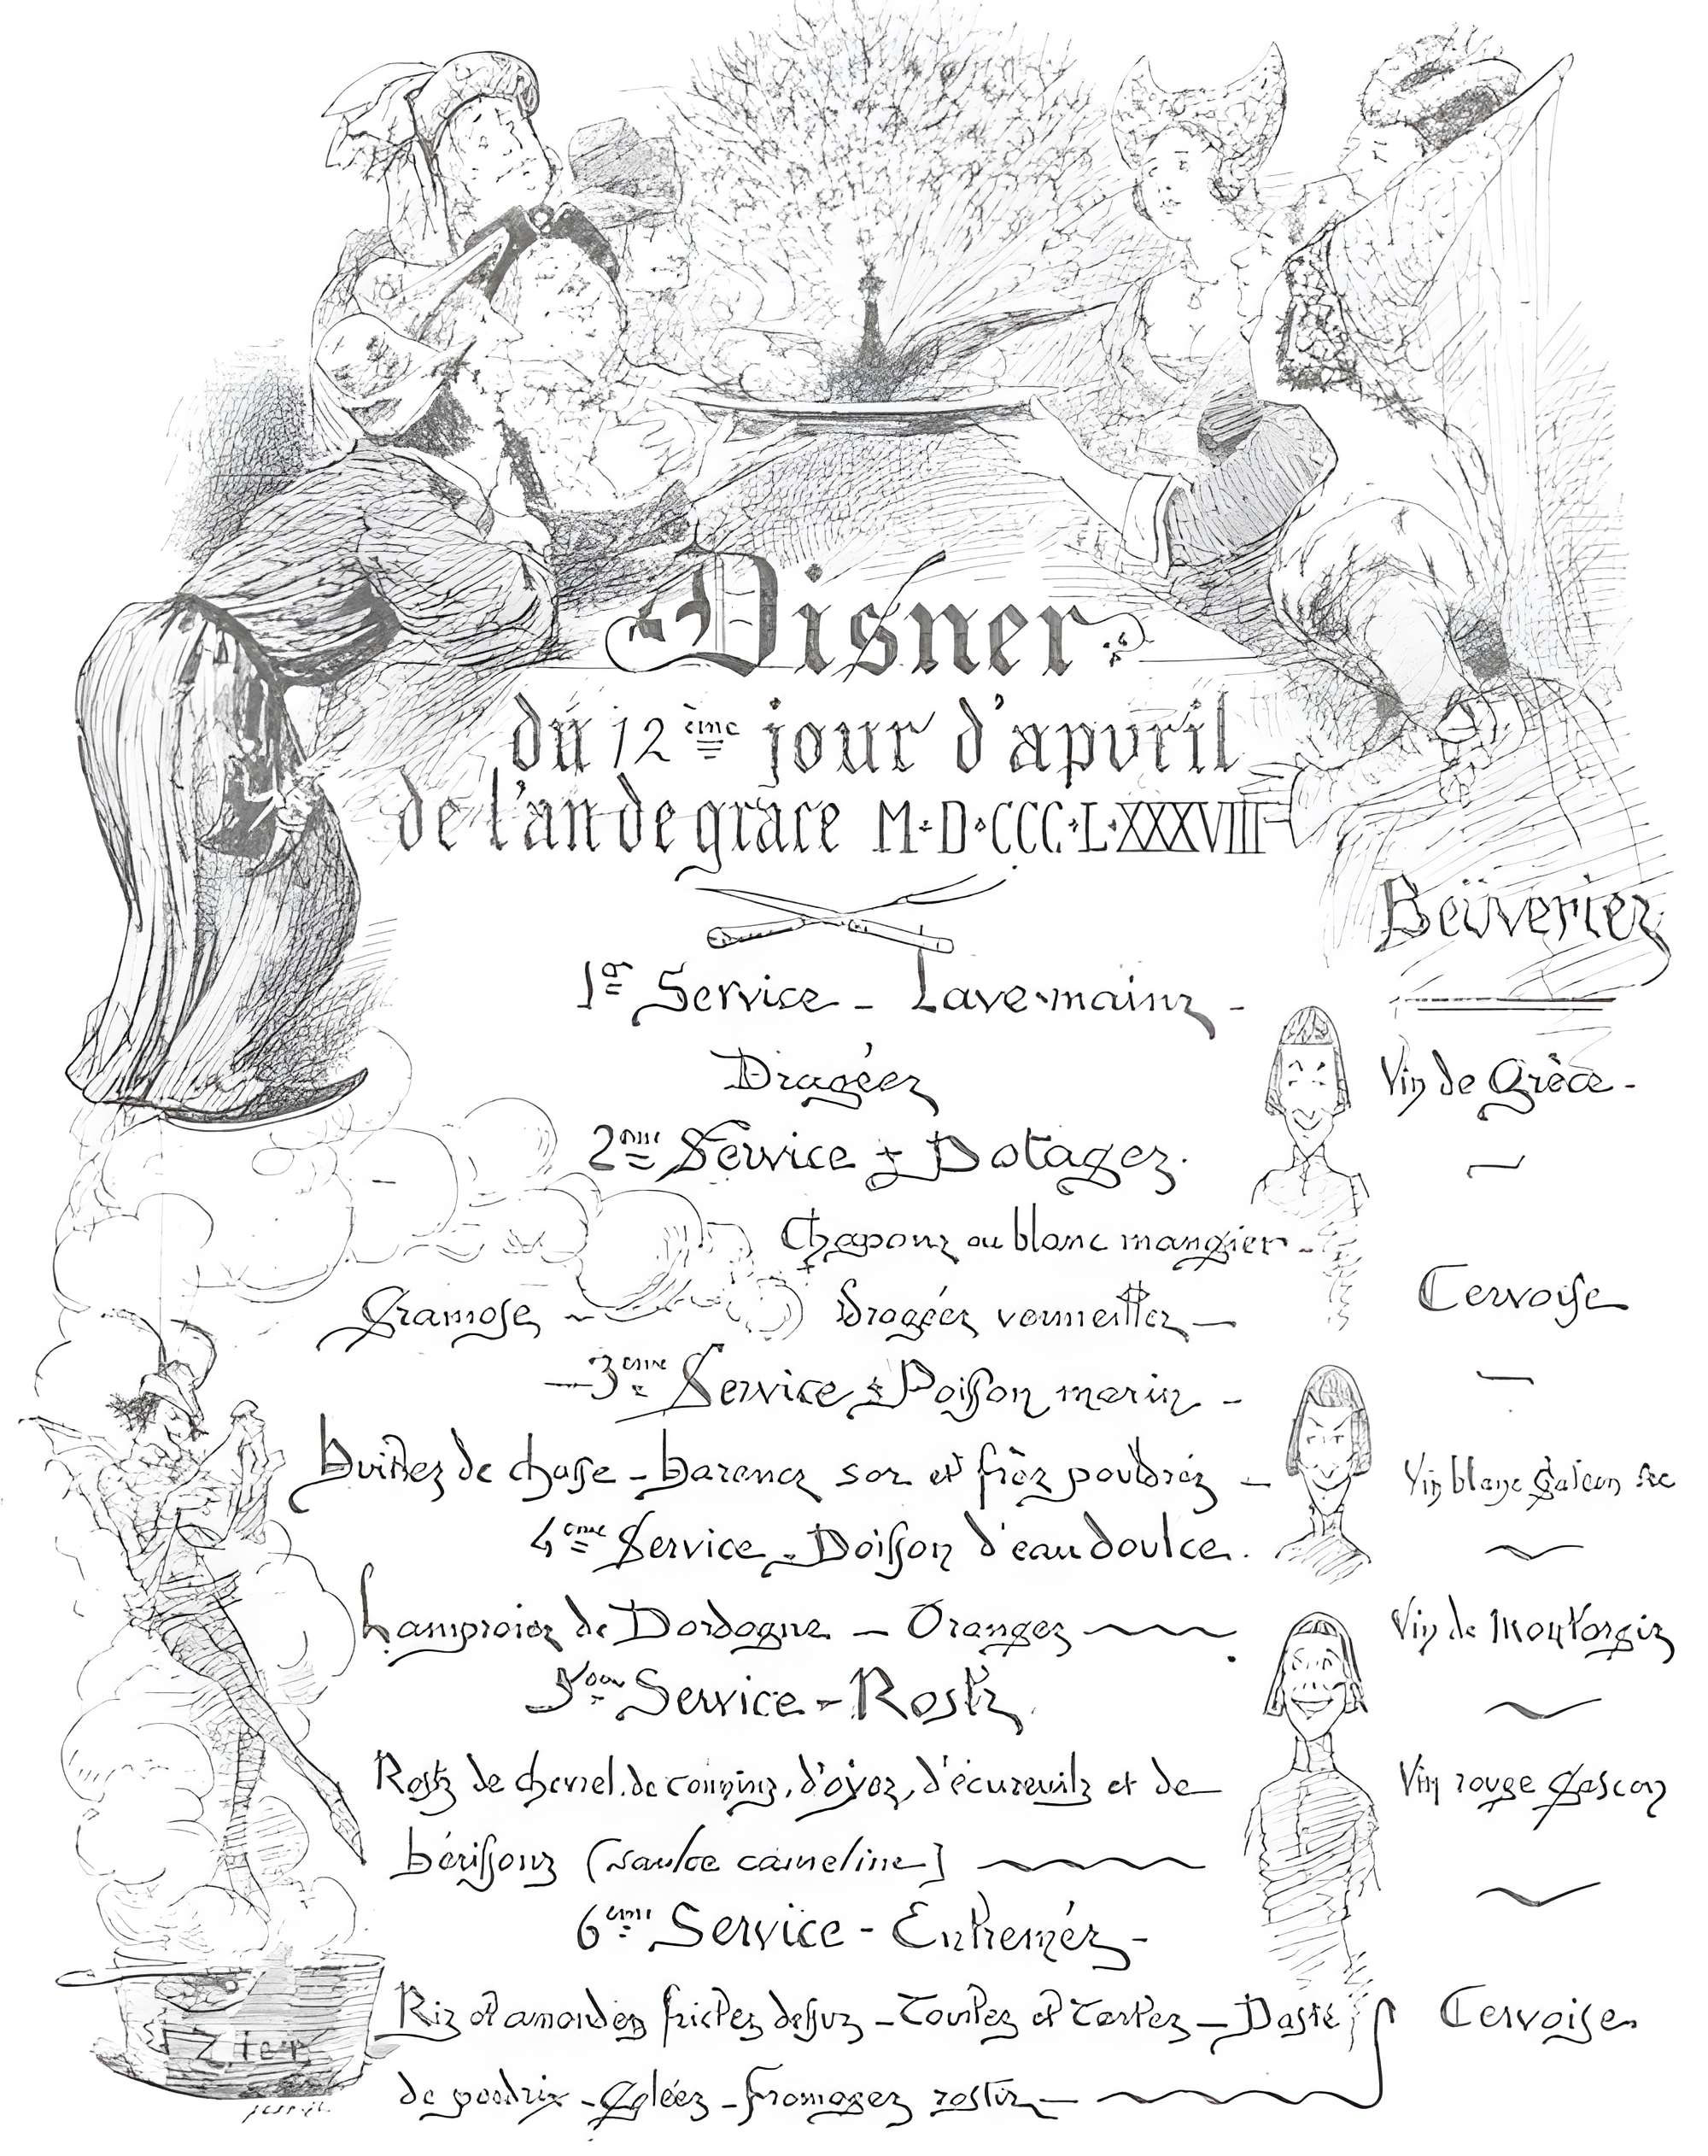 Disner
dú 12ème jour d'apvril
de l'an de grâce M·D·CCC·L·XXXVIII
Beüveriez
1er Service - Lave-mainz -
Dragéez
Vin de Grèce -
2ème Service - Potagez.
Chaponz au blanc mangier -
Gramose - Dragéez vermeillez -
Cervoise
- 3eme Service - Poisson marin -
Huitrez de chasse - Harencz sor et frèz pouldréz -
Vin blanc Gascon sec
4eme Service - Poisson d'eau doulce.
Lamproiez de Dordogne - Orangez
Vin de Montorgiz
5eme Service - Rostz
Rostz de chevrel, de conninz, d'oyez, d'écureuilz et de
Vin rouge Gascon
hérissonz (saulce cameline)
6eme Service - Entreméz -
Riz et amandez frictez dessuz - Tourtez et Tartez - Pasté
Cervoise
de perdrix - Geléez - Fromagez rostiz -